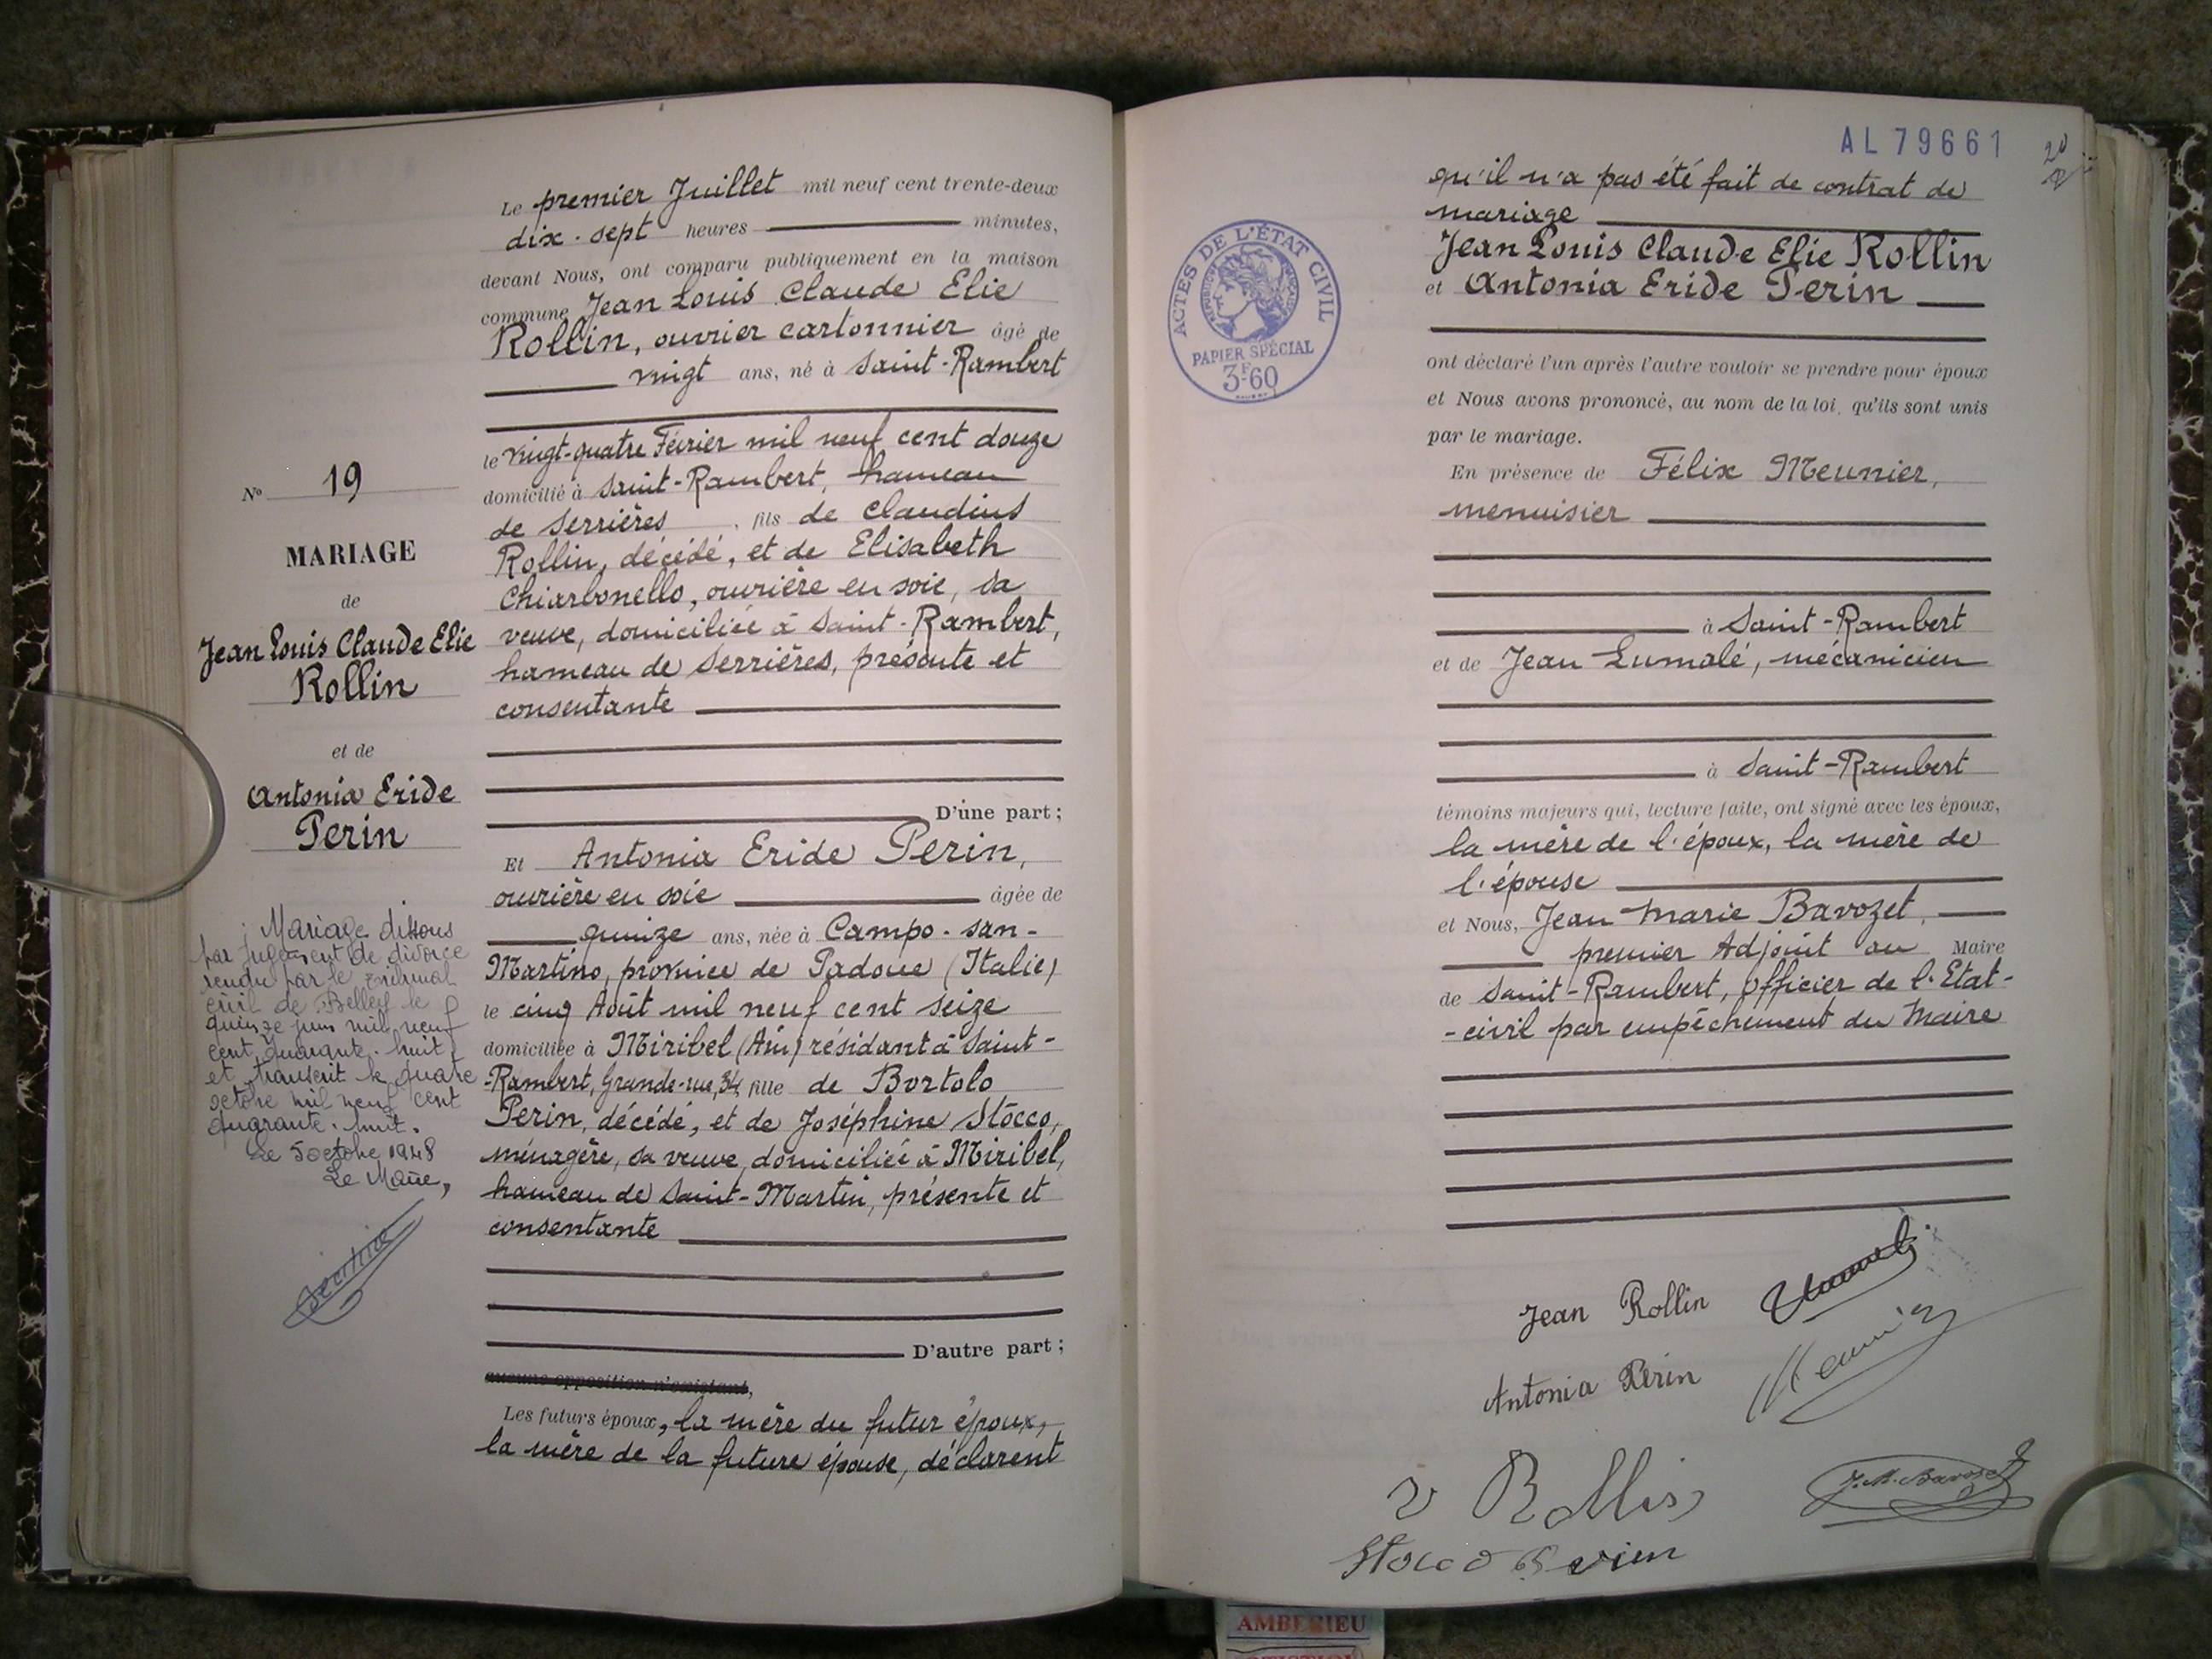 Le premier Juillet mil neuf cent trente-deux
dix-sept heures minutes,
devant Nous, ont comparu publiquement en la maison
commune Jean Louis Claude Elie
Rollin, ouvrier cartonnier âgé de
vingt ans, né à Saint-Rambert
le vingt-quatre Février mil neuf cent douze
domicilié à Saint-Rambert, hameau
de Serrières, fils de Claudius
Rollin, décédé, et de Elisabeth
Chiarbonello, ouvrière en soie, sa
veuve, domiciliée à Saint-Rambert,
hameau de Serrières, présente et
consentante
D'une part ;
Et Antonia Eride Perin,
ouvrière en soie âgée de
quinze ans, née à Campo-san-
Martino, province de Padoue (Italie)
le cinq Août mil neuf cent seize
domiciliée à Miribel (Ain) résidant à Saint-
-Rambert, Grande-rue, 34, fille de Bortolo
Perin, décédé, et de Joséphine Stocco,
ménagère, sa veuve, domiciliée à Miribel,
hameau de Saint-Martin, présente et
consentante
D'autre part ;
aucune opposition n'existant,
Les futurs époux, la mère du futur époux,
la mère de la future épouse, déclarent
No 19
MARIAGE
de
Jean Louis Claude Elie
Rollin
et de
Antonia Eride
Perin
Mariage dissous
par jugement de divorce
rendu par le tribunal
civil de Belley le
quinze juin mil neuf
cent quarante-huit
et transcrit le quatre
octobre mil neuf cent
quarante-huit.
Le 5 octobre 1948
Le Maire,
AL 79661
20
qu'il n'a pas été fait de contrat de
mariage
Jean Louis Claude Elie Rollin
et Antonia Eride Perin
ACTES DE L'ÉTAT CIVIL
PAPIER SPÉCIAL
3F60
ont déclaré l'un après l'autre vouloir se prendre pour époux
et Nous avons prononcé, au nom de la loi, qu'ils sont unis
par le mariage.
En présence de Félix Meunier,
menuisier
à Saint-Rambert
et de Jean Lumalé, mécanicien
à Saint-Rambert
témoins majeurs qui, lecture faite, ont signé avec les époux,
la mère de l'époux, la mère de
l'épouse
et Nous, Jean Marie Bavozet,
premier Adjoint au Maire
de Saint-Rambert, officier de l'Etat-
-civil par empêchement du Maire
Jean Rollin
Antonia Perin
Meunier
v Rollin
J.M. Bavozet
AMBERIEU